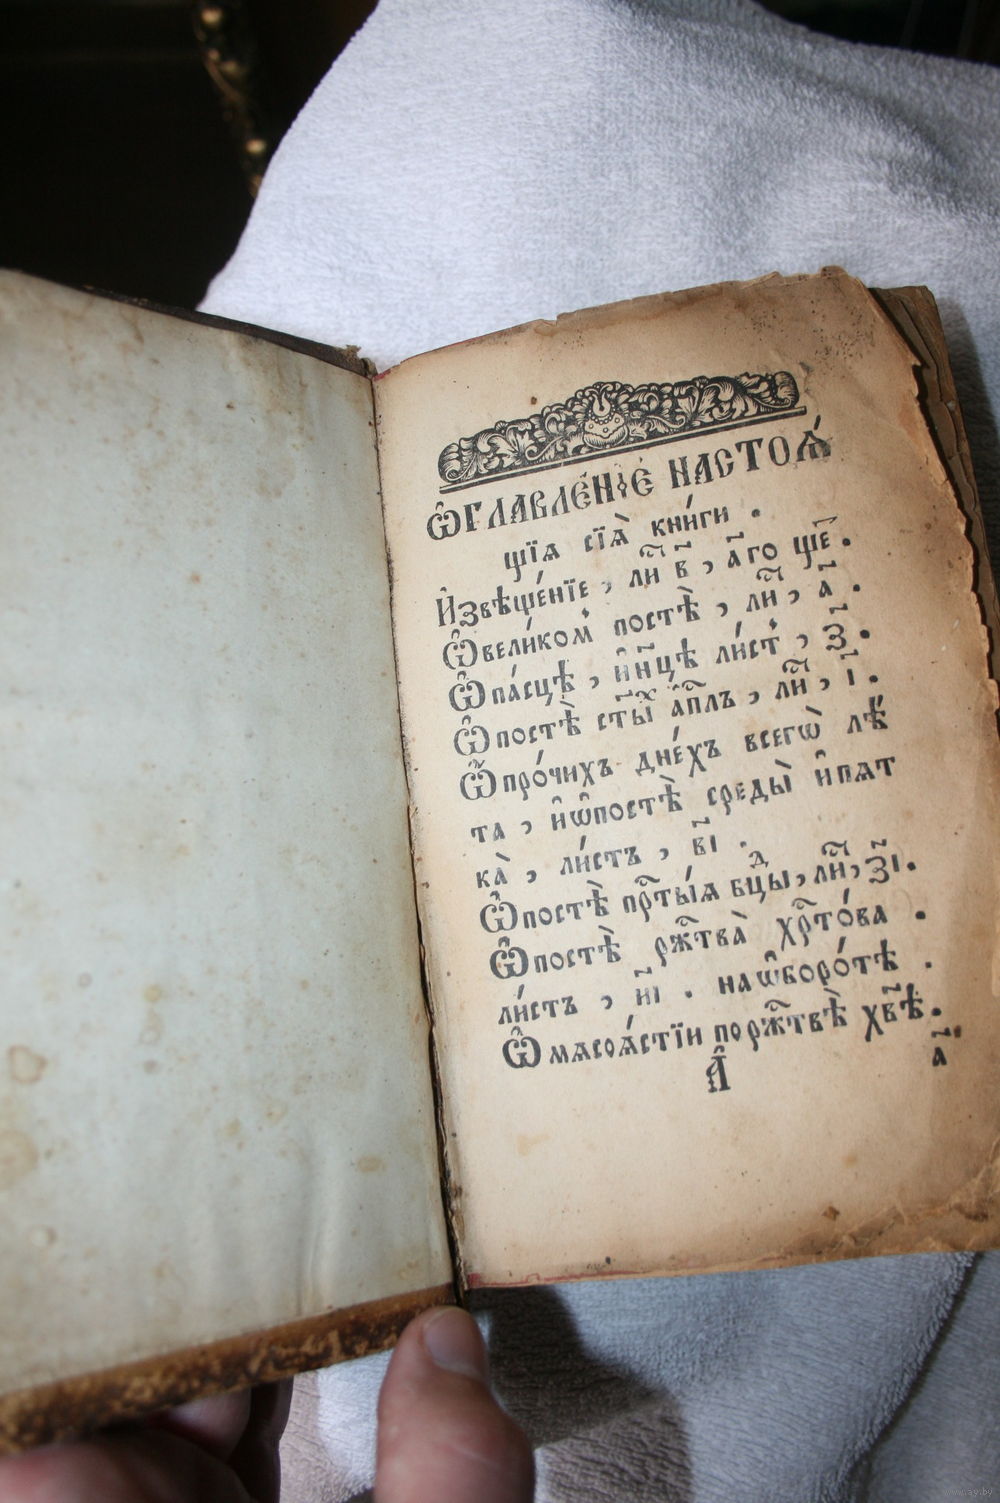 Ѡ҆ГЛАВЛЕ́НЇЕ НАСТОѦ́
щїѧ сїѧ̀ кни́ги .
И҆звѣще́нїе , ли҃ в҃ , а҃го ще҃ .
Ѽ вели́ком постѣ̀ , ли҃ , а҃ .
Ѽ па́сцѣ , и҆ н҃цѣ ли́ст , з҃ .
Ѽ постѣ̀ ст҃ы́х а҆п҃лъ , ли҃ , і҃ .
Ѽ про́чихъ дне́хъ всегѡ̀ лѣ́
та , и҆ ѡ҆ постѣ̀ среды̀ и҆ пѧт
ка̀ , ли́стъ , в҃і .
Ѽ постѣ̀ пр҃ты́ѧ бц҃ды , ли҃ , з҃і .
Ѽ постѣ̀ рж҃тва̀ хр҃то́ва .
ли́стъ , и҃і . на ѡ҆боро́тѣ .
Ѽ мѧсоѧ́стїи по рж҃твѣ̀ хв҃ѣ .
А҆ а҃
www.ay.by